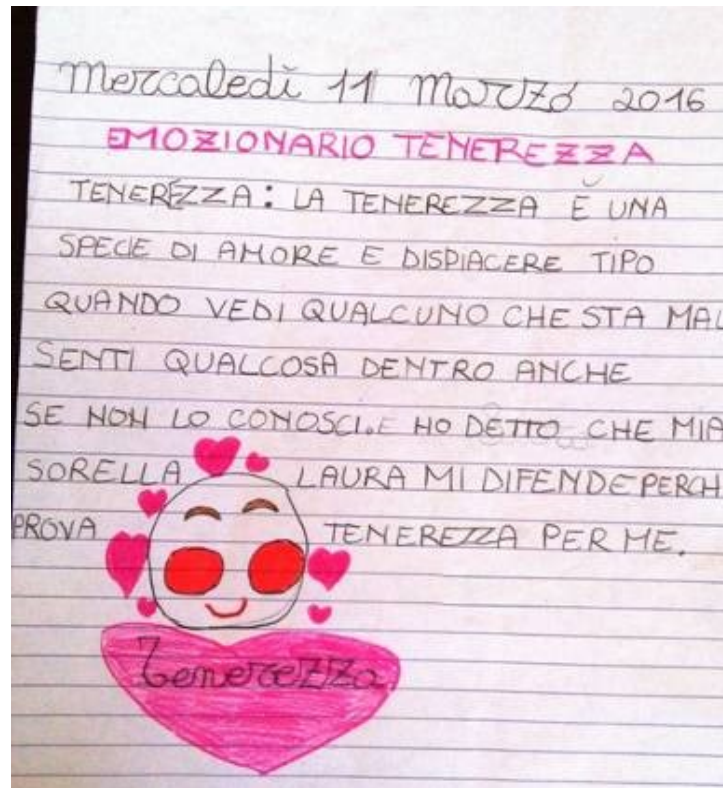 Mercoledì 11 Marzo 2016
EMOZIONARIO TENEREZZA
TENEREZZA: LA TENEREZZA È UNA
SPECIE DI AMORE E DISPIACERE TIPO
QUANDO VEDI QUALCUNO CHE STA MAL
SENTI QUALCOSA DENTRO ANCHE
SE NON LO CONOSCI.E HO DETTO CHE MIA
SORELLA LAURA MI DIFENDE PERCH
PROVA TENEREZZA PER ME.
Tenerezza